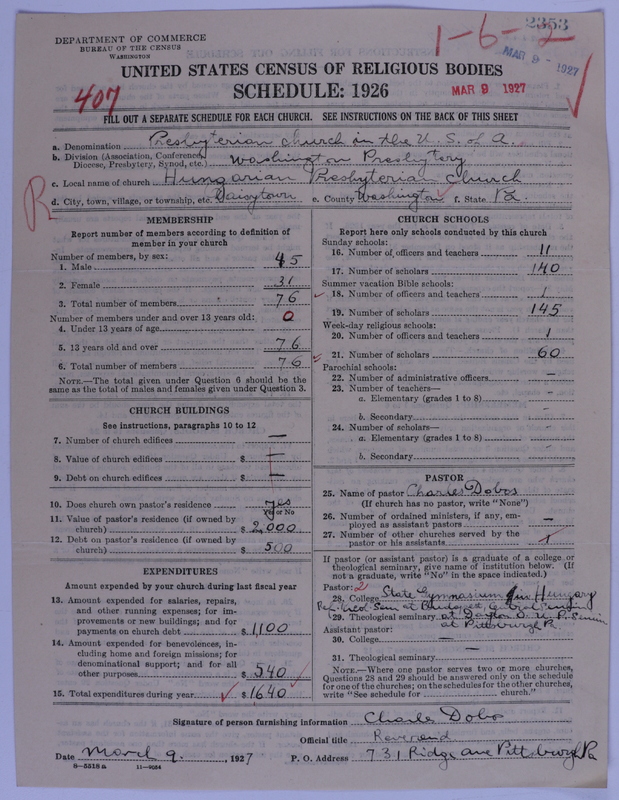 2353
DEPARTMENT OF COMMERCE
BUREAU OF THE CENSUS
WASHINGTON
1-6-2
MAR 9 - 1927
UNITED STATES CENSUS OF RELIGIOUS BODIES
SCHEDULE: 1926
MAR 9 1927
407
FILL OUT A SEPARATE SCHEDULE FOR EACH CHURCH. SEE INSTRUCTIONS ON THE BACK OF THIS SHEET
a. Denomination Presbyterian church in the U. S. of A.
b. Division (Association, Conference, Diocese, Presbytery, Synod, etc.) Washington Presbytery
c. Local name of church Hungarian Presbyterian Church
R
d. City, town, village, or township, etc. Daisytown e. County Washington f. State Pa.
MEMBERSHIP
Report number of members according to definition of
member in your church
Number of members, by sex:
1. Male 45
2. Female 31
3. Total number of members 76
Number of members under and over 13 years old: 0
4. Under 13 years of age
5. 13 years old and over 76
6. Total number of members 76
NOTE.—The total given under Question 6 should be the
same as the total of males and females given under Question 3.
CHURCH BUILDINGS
See instructions, paragraphs 10 to 12
7. Number of church edifices —
8. Value of church edifices $ —
9. Debt on church edifices $ —
10. Does church own pastor's residence yes
Yes or No
11. Value of pastor's residence (if owned by
church) $ 2,000
12. Debt on pastor's residence (if owned by
church) $ 500
EXPENDITURES
Amount expended by your church during last fiscal year
13. Amount expended for salaries, repairs,
and other running expenses; for im-
provements or new buildings; and for
payments on church debt $ 1,100
14. Amount expended for benevolences, in-
cluding home and foreign missions; for
denominational support; and for all
other purposes $ 540
15. Total expenditures during year $ 1640
CHURCH SCHOOLS
Report here only schools conducted by this church
Sunday schools:
16. Number of officers and teachers 11
17. Number of scholars 140
Summer vacation Bible schools:
18. Number of officers and teachers 1
19. Number of scholars 145
Week-day religious schools:
20. Number of officers and teachers 1
21. Number of scholars 60
Parochial schools:
22. Number of administrative officers –
23. Number of teachers—
a. Elementary (grades 1 to 8) –
b. Secondary –
24. Number of scholars—
a. Elementary (grades 1 to 8) –
b. Secondary –
PASTOR
25. Name of pastor Charles Dobos
(If church has no pastor, write "None")
26. Number of ordained ministers, if any, em-
ployed as assistant pastors —
27. Number of other churches served by the
pastor or his assistants 1
If pastor (or assistant pastor) is a graduate of a college or
theological seminary, give name of institution below. (If
not a graduate, write "No" in the space indicated.)
Pastor: 2
28. College State Gymnasium in Hungary
29. Theological seminary at Dayton O. U. P. Semin
at Pittsburgh Pa
Assistant pastor:
30. College —
31. Theological seminary —
NOTE.—Where one pastor serves two or more churches,
Questions 28 and 29 should be answered only on the schedule
for one of the churches; on the schedules for the other churches,
write "See schedule for church."
Signature of person furnishing information Charles Dobos
Official title Reverend
Date March 9, 1927 P. O. Address 731 Ridge ave Pittsburgh Pa
8—5518 a 11—9054